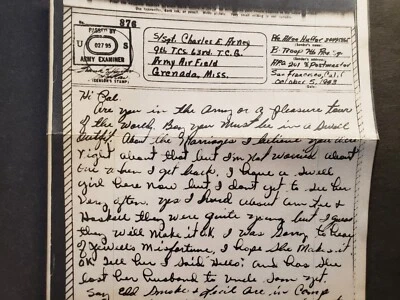 No. 876
PASSED BY
U S
02795
ARMY EXAMINER
(CENSOR'S STAMP)
S/Sgt. Charles E. Arney
9th TCS 63rd. T.C.G.
Army Air Field
Grenada, Miss.
(Sender's name)
B Troop 7th
APO 201 % Postmaster
San Francisco, Calif
October 5, 1943
Hi Pal.
Are you in the Army or a pleasure tour
of the World. Boy you must be in a Swell
Outfit. About the Marriages I believe you were
right about that but I'm not worried about
one when I get back. I have a Swell
girl here now but I don't get to see her
very often. Yes I heard about
Haskell they were quite young but I guess
they will make it OK. I was sorry to hear
of Jewells Misfortune, I hope She Makes it
OK. Tell her I Said "Hello", and has She
lost her husband to Uncle Sam yet
Say Old Smoke + are in Camp